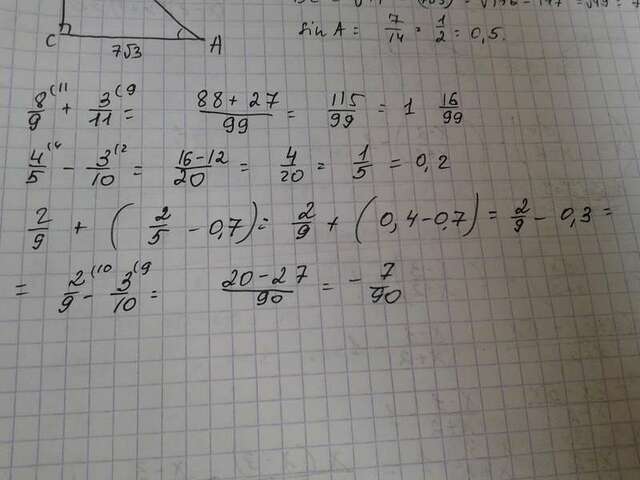 C 7√3 A
sin A = 7/14 = 1/2 = 0,5.
8/9 (11 + 3/11 (9 = 88+27/99 = 115/99 = 1 16/99
4/5 (4 - 3/10 (2 = 16-12/20 = 4/20 = 1/5 = 0,2
2/9 + ( 2/5 - 0,7) = 2/9 + ( 0,4-0,7) = 2/9 - 0,3 =
= 2/9 (10 - 3/10 (9 = 20-27/90 = - 7/90